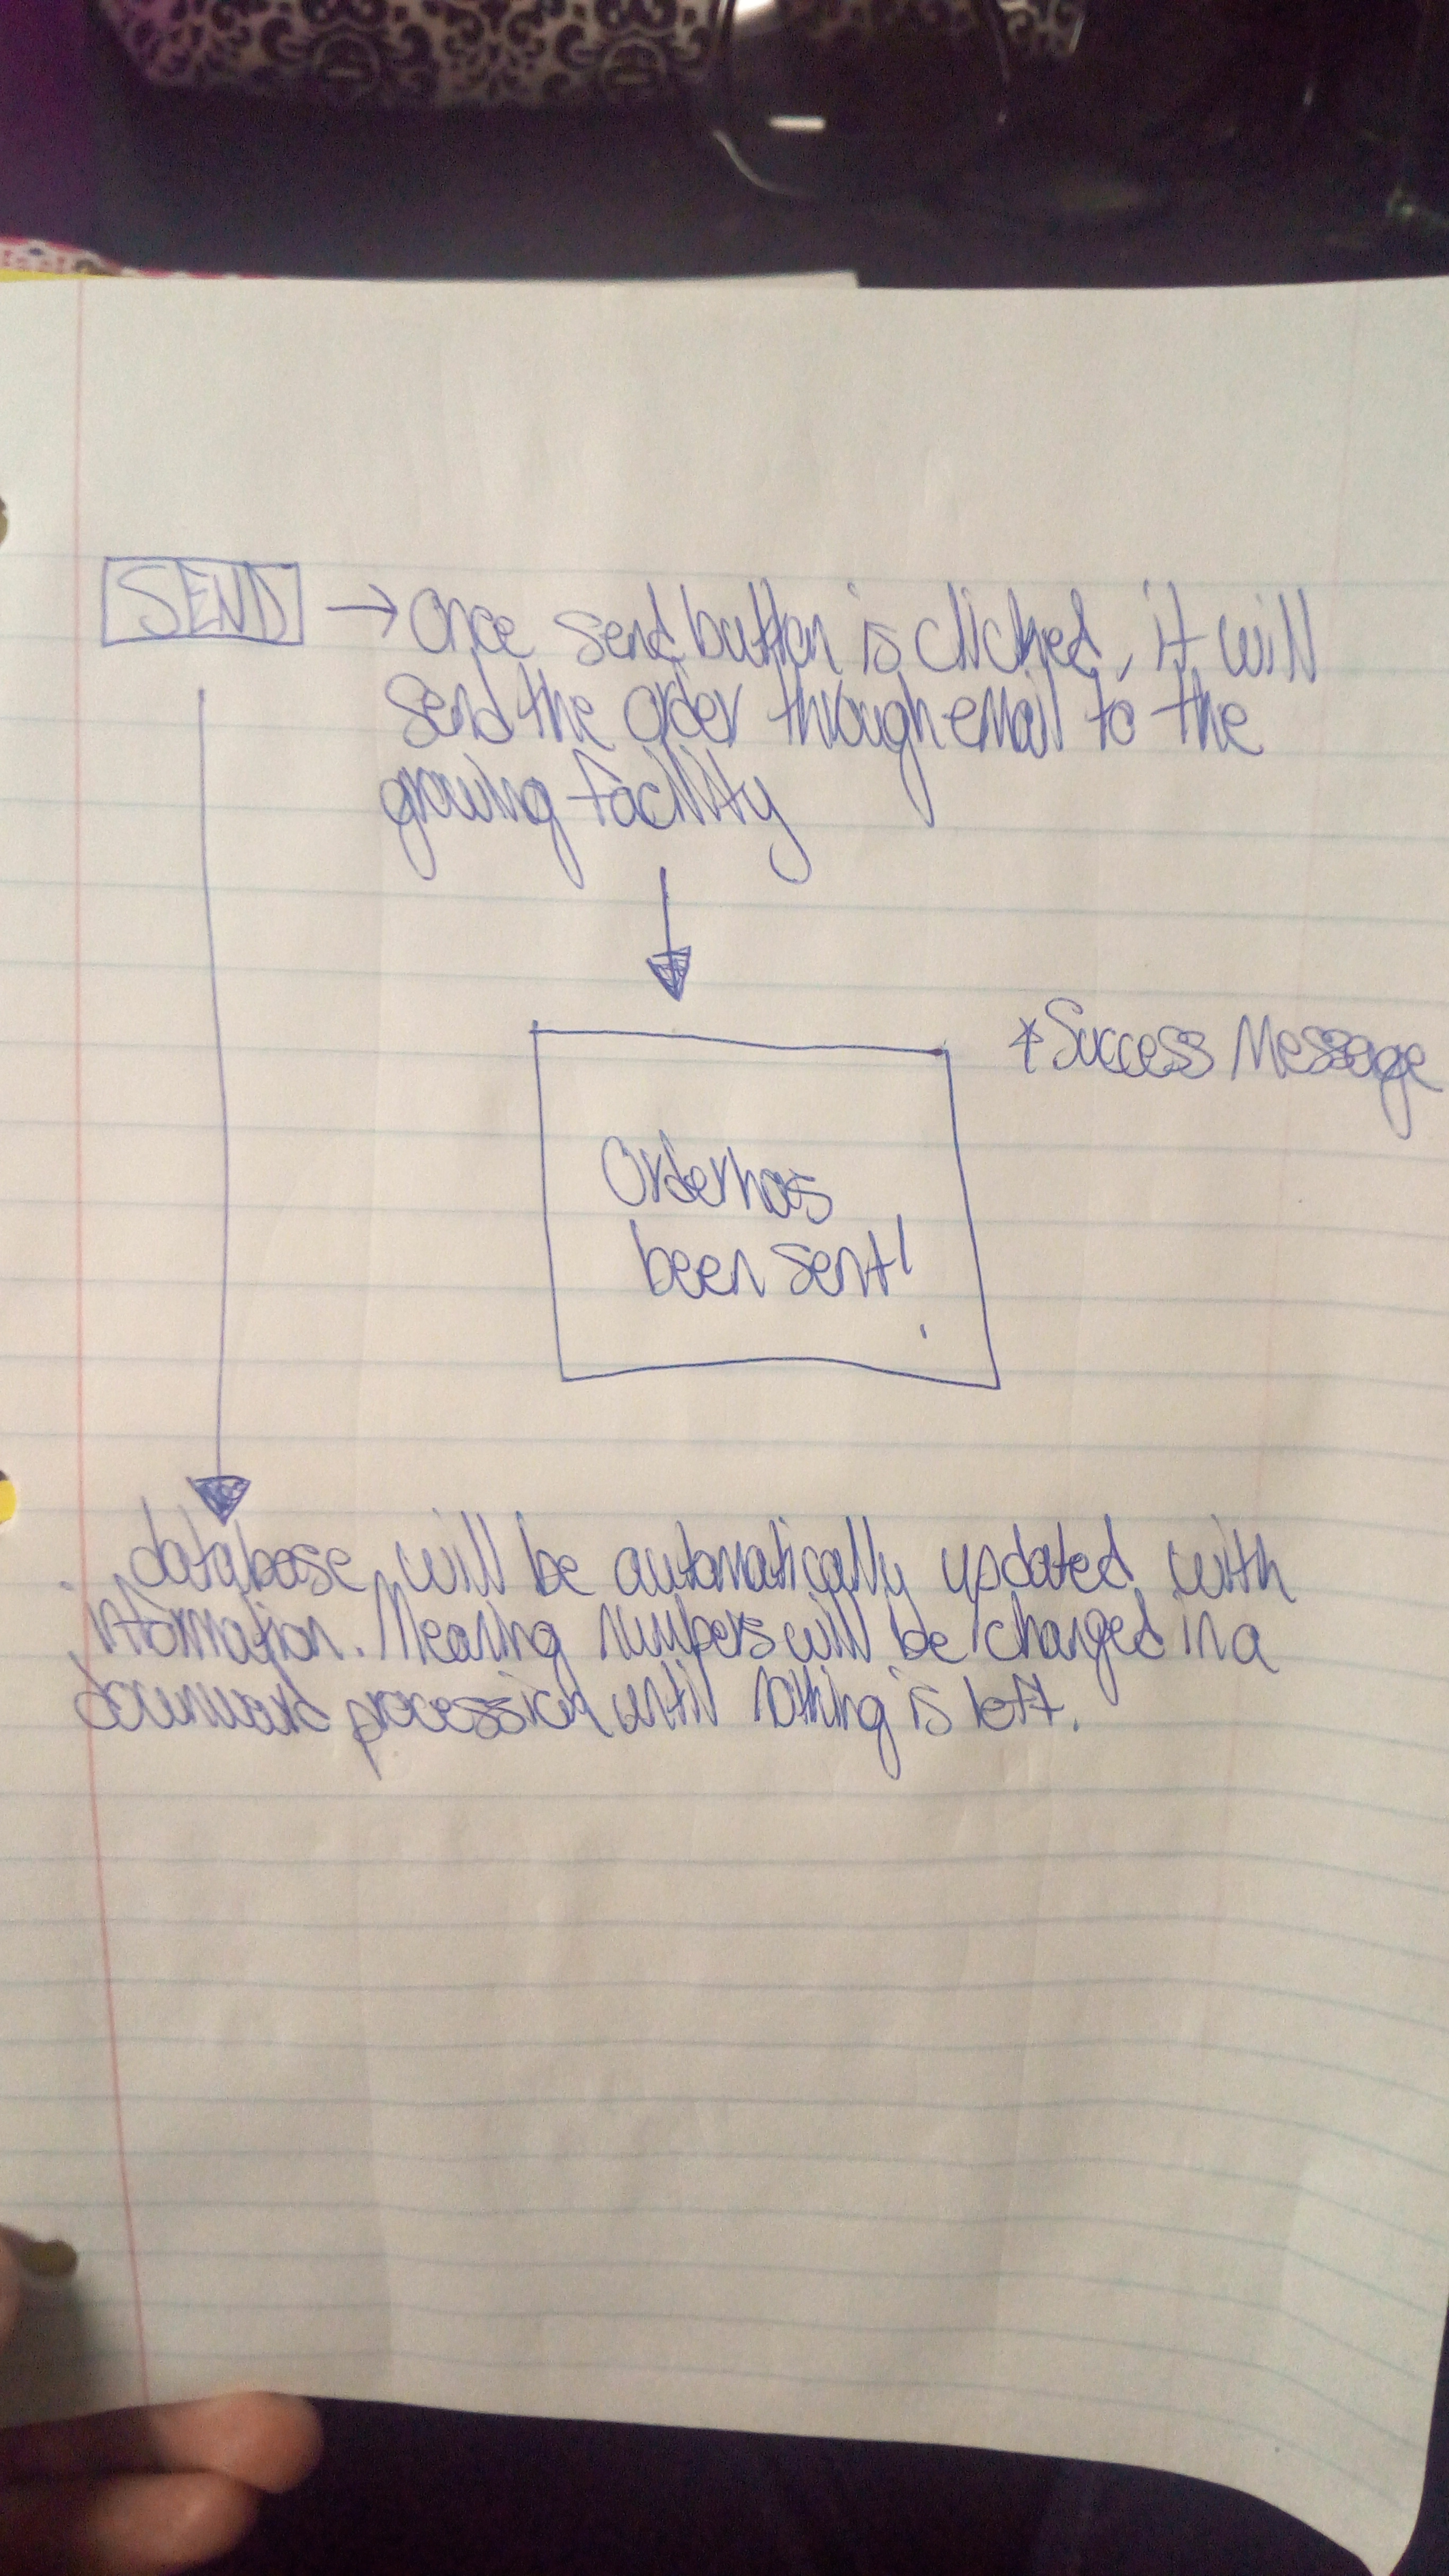 SEND → Once send button is clicked, it will
send the order through email to the
growing facility
*Success Message
Order has
been sent!
database will be automatically updated with
information. Meaning numbers will be changed in a
downward procession until nothing is left.